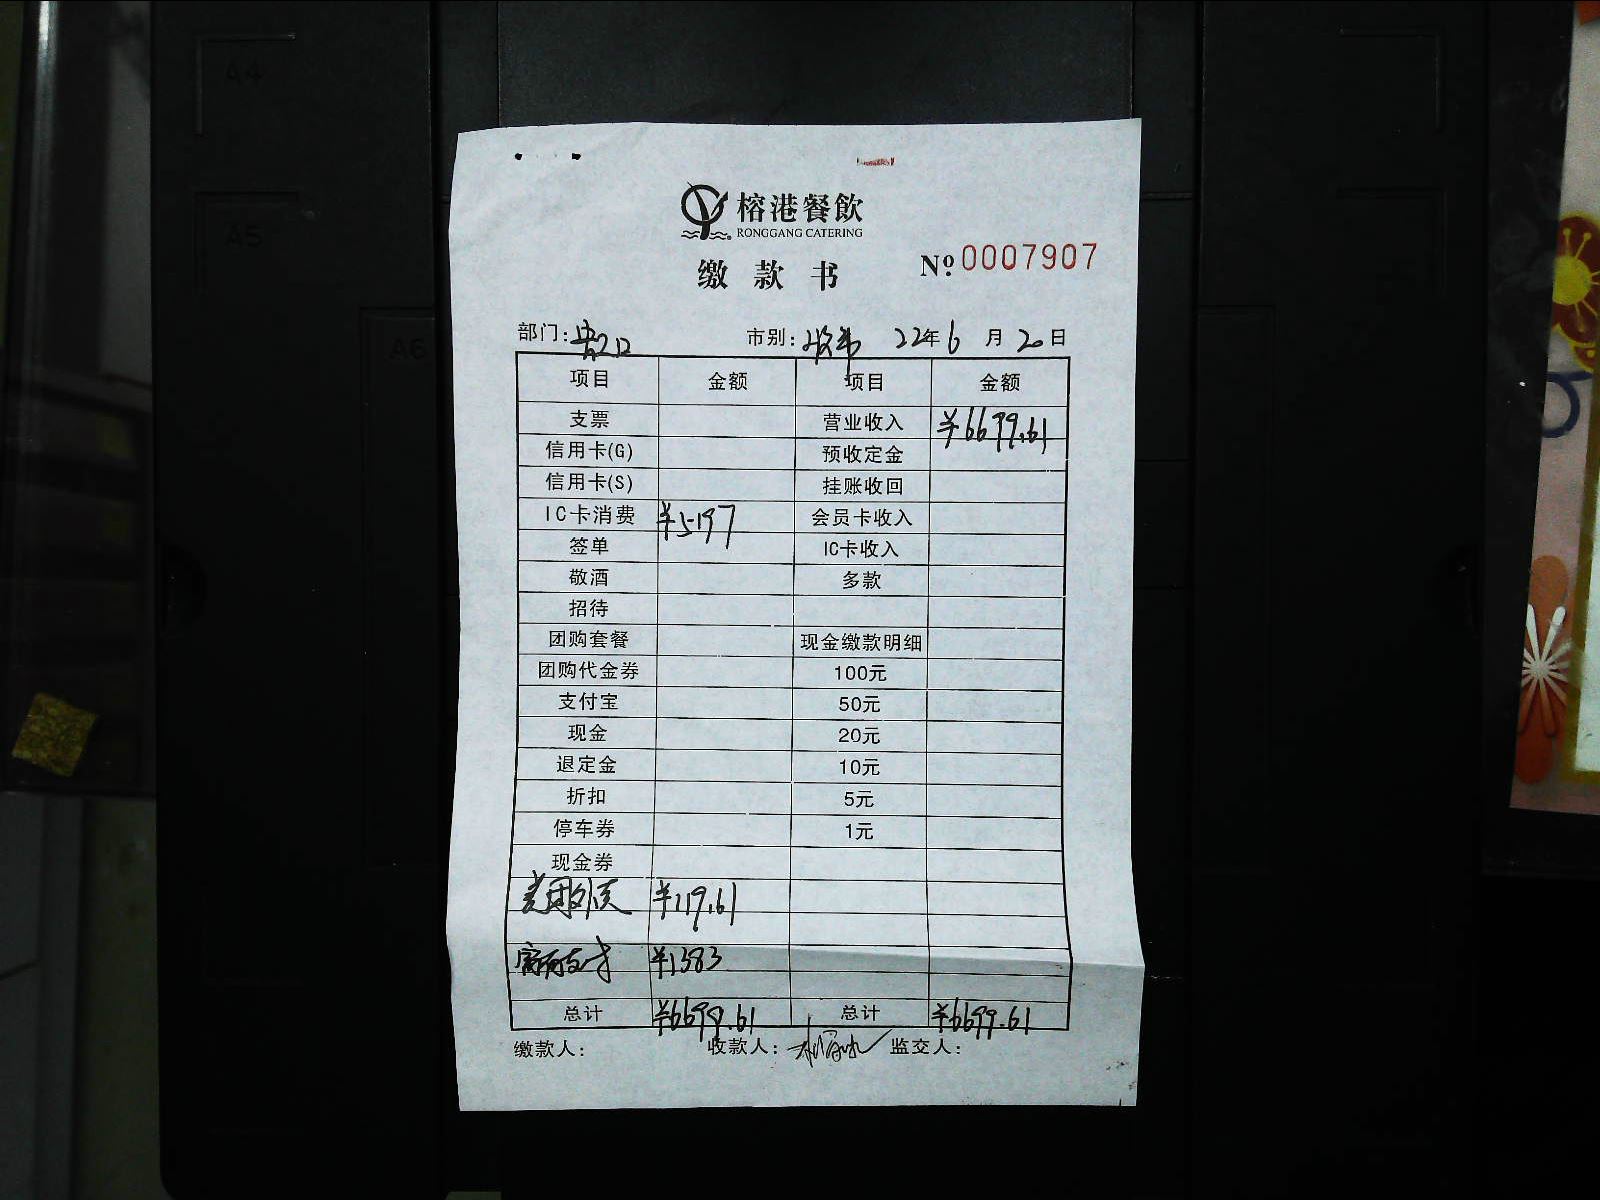 A4
A5
A6
榕港餐飲
RONGGANG CATERING
缴款书
№ 0007907
部门: 市别: 22年6月20日
项目 金额 项目 金额
支票 营业收入 ¥6699.61
信用卡(G) 预收定金
信用卡(S) 挂账收回
IC卡消费 ¥5197 会员卡收入
签单 IC卡收入
敬酒 多款
招待
团购套餐 现金缴款明细
团购代金券 100元
支付宝 50元
现金 20元
退定金 10元
折扣 5元
停车券 1元
现金券
美团外卖 ¥119.61
¥1383
总计 ¥6699.61 总计 ¥6699.61
缴款人: 收款人: 监交人: